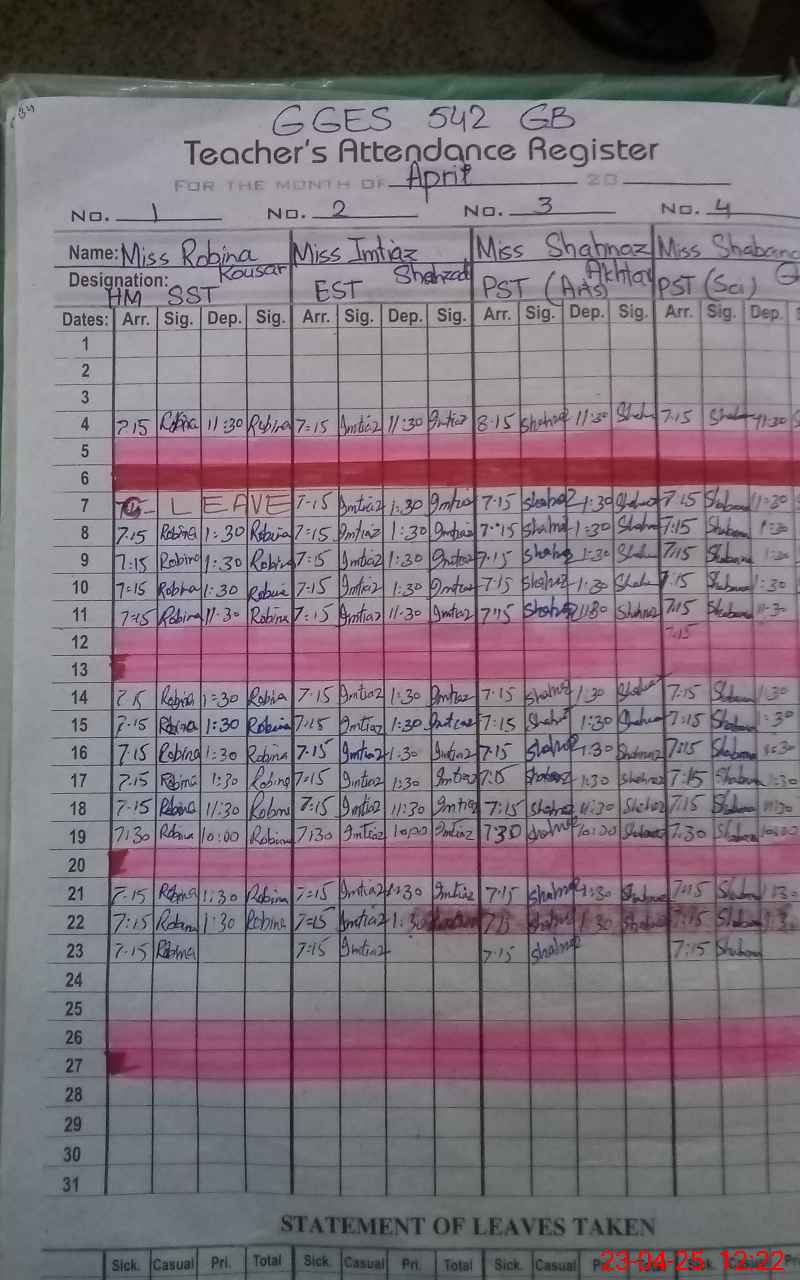 GGES 542 GB
Teacher's Attendance Register
FOR THE MONTH OF April 20
No. 1 No. 2 No. 3 No. 4
Name: Miss Robina Kousar Miss Imtiaz Shahzad Miss Shahnaz Akhtar Miss Shabana
Designation: HM SST EST PST (Arts) PST (Sci)
Dates: Arr. Sig. Dep. Sig. Arr. Sig. Dep. Sig. Arr. Sig. Dep. Sig. Arr. Sig. Dep.
1
2
3
4 7:15 Robina 11:30 Robina 7:15 Imtiaz 11:30 Imtiaz 8:15 Shahnaz 11:30 7:15 11:30
5
6
7 LEAVE 7:15 Imtiaz 1:30 Imtiaz 7:15 Shahnaz 1:30 Shahnaz 7:15 Shabana 1:30
8 7:15 Robina 1:30 Robina 7:15 Imtiaz 1:30 Imtiaz 7:15 Shahnaz 1:30 Shahnaz 7:15 Shabana 1:30
9 7:15 Robina 1:30 Robina 7:15 Imtiaz 1:30 Imtiaz 7:15 Shahnaz 1:30 7:15 Shabana 1:30
10 7:15 Robina 1:30 Robina 7:15 Imtiaz 1:30 Imtiaz 7:15 Shahnaz 1:30 7:15 Shabana 1:30
11 7:15 Robina 11:30 Robina 7:15 Imtiaz 11:30 Imtiaz 7:15 Shahnaz 11:30 Shahnaz 7:15 Shabana 11:30
12 7:15
13
14 7:15 Robina 1:30 Robina 7:15 Imtiaz 1:30 Imtiaz 7:15 Shahnaz 1:30 Shahnaz 7:15 Shabana 1:30
15 7:15 Robina 1:30 Robina 7:15 Imtiaz 1:30 Imtiaz 7:15 Shahnaz 1:30 Shahnaz 7:15 Shabana 1:30
16 7:15 Robina 1:30 Robina 7:15 Imtiaz 1:30 Imtiaz 7:15 Shahnaz 1:30 Shahnaz 7:15 Shabana 1:30
17 7:15 Robina 1:30 Robina 7:15 Imtiaz 1:30 Imtiaz 7:15 Shahnaz 1:30 Shahnaz 7:15 Shabana 1:30
18 7:15 Robina 11:30 Robina 7:15 Imtiaz 11:30 Imtiaz 7:15 Shahnaz 11:30 Shahnaz 7:15 Shabana 11:30
19 7:30 Robina 10:00 Robina 7:30 Imtiaz 10:00 Imtiaz 7:30 Shahnaz 10:00 Shahnaz 7:30 Shabana 10:00
20
21 7:15 Robina 1:30 Robina 7:15 Imtiaz 1:30 Imtiaz 7:15 Shahnaz 1:30 Shahnaz 7:15 Shabana 1:30
22 7:15 Robina 1:30 Robina 7:15 Imtiaz 1:30 7:15 Shahnaz 1:30 Shahnaz 7:15 Shabana 1:30
23 7:15 Robina 7:15 Imtiaz 7:15 Shahnaz 7:15 Shabana
24
25
26
27
28
29
30
31
STATEMENT OF LEAVES TAKEN
Sick. Casual Pri. Total Sick. Casual Pri. Total Sick. Casual Total Sick. Casual Pri
23-04-25 12:22